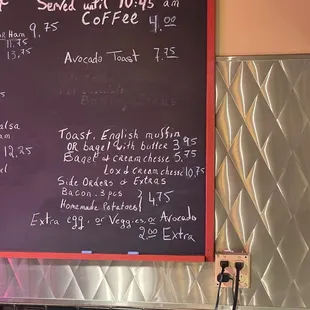 Served until 10:45 am
Coffee 4.00
Ham 9.75
11.75
13.75
Avocado Toast 7.75
alsa
12.25
el
Toast, English muffin
or bagel with butter 3.95
Bagel & creamchesse 5.75
Lox & creamchesse 10.75
Side Orders & Extras
Bacon. 3pcs
Homemade Potatoes } 4.75
Extra egg, or Veggies, or Avocado
2.00 Extra